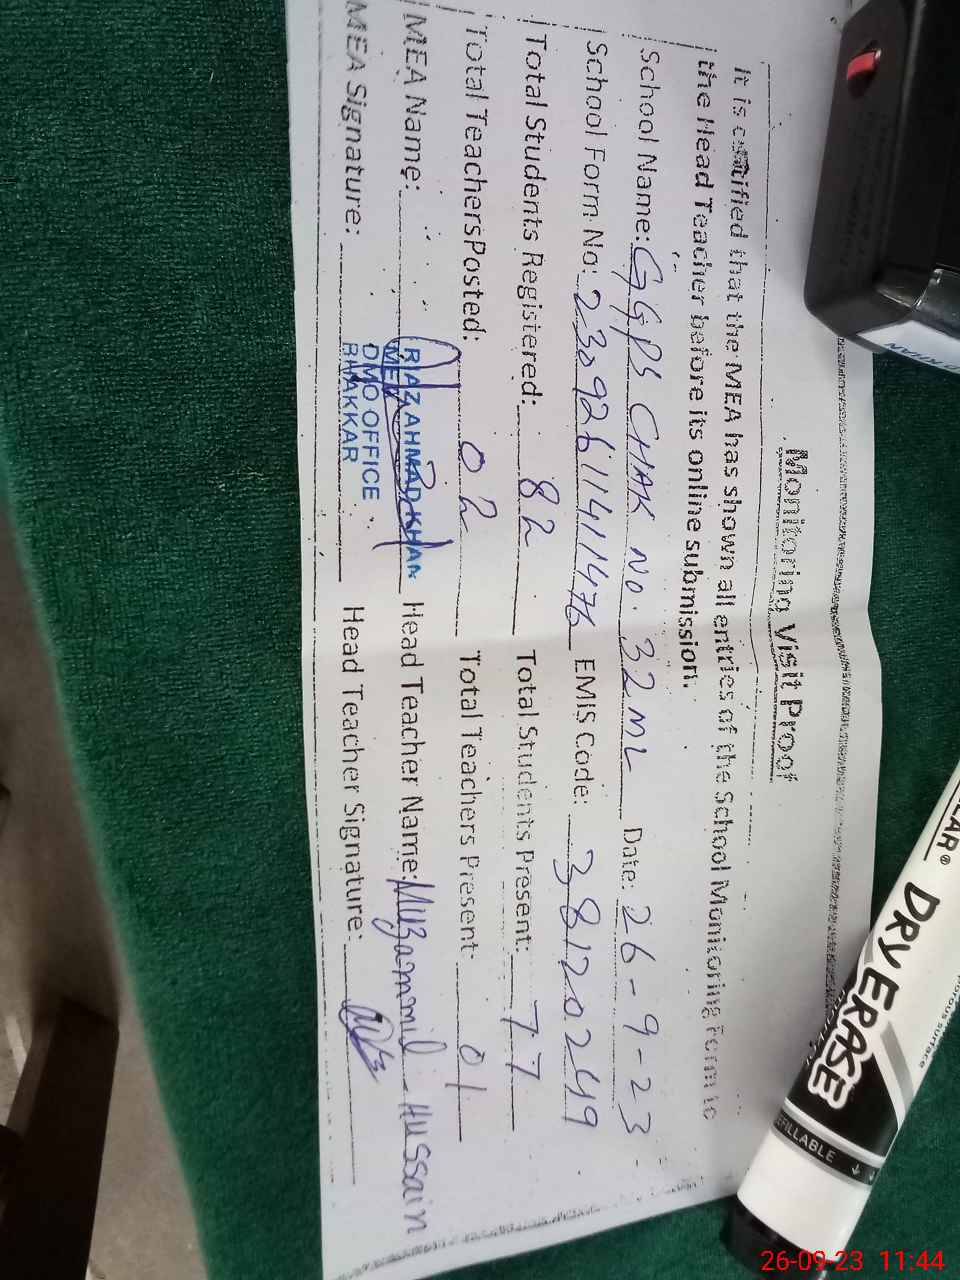 Monitoring Visit Proof
It is certified that the MEA has shown all entries of the School Monitoring Form to
the Head Teacher before its online submission.
School Name: GGPS CHAK NO. 32 ML Date: 26-9-23
School Form No: 2309261141476 EMIS Code: 38120249
Total Students Registered: 82 Total Students Present: 77
Total TeachersPosted: 02 Total Teachers Present: 01
MEA Name: RIAZ AHMAD KHAN Head Teacher Name: Muzammil - Hussain
MEA
DMO OFFICE
BHAKKAR
MEA Signature: Head Teacher Signature:
DRY ERASE
REFILLABLE
26-09-23 11:44